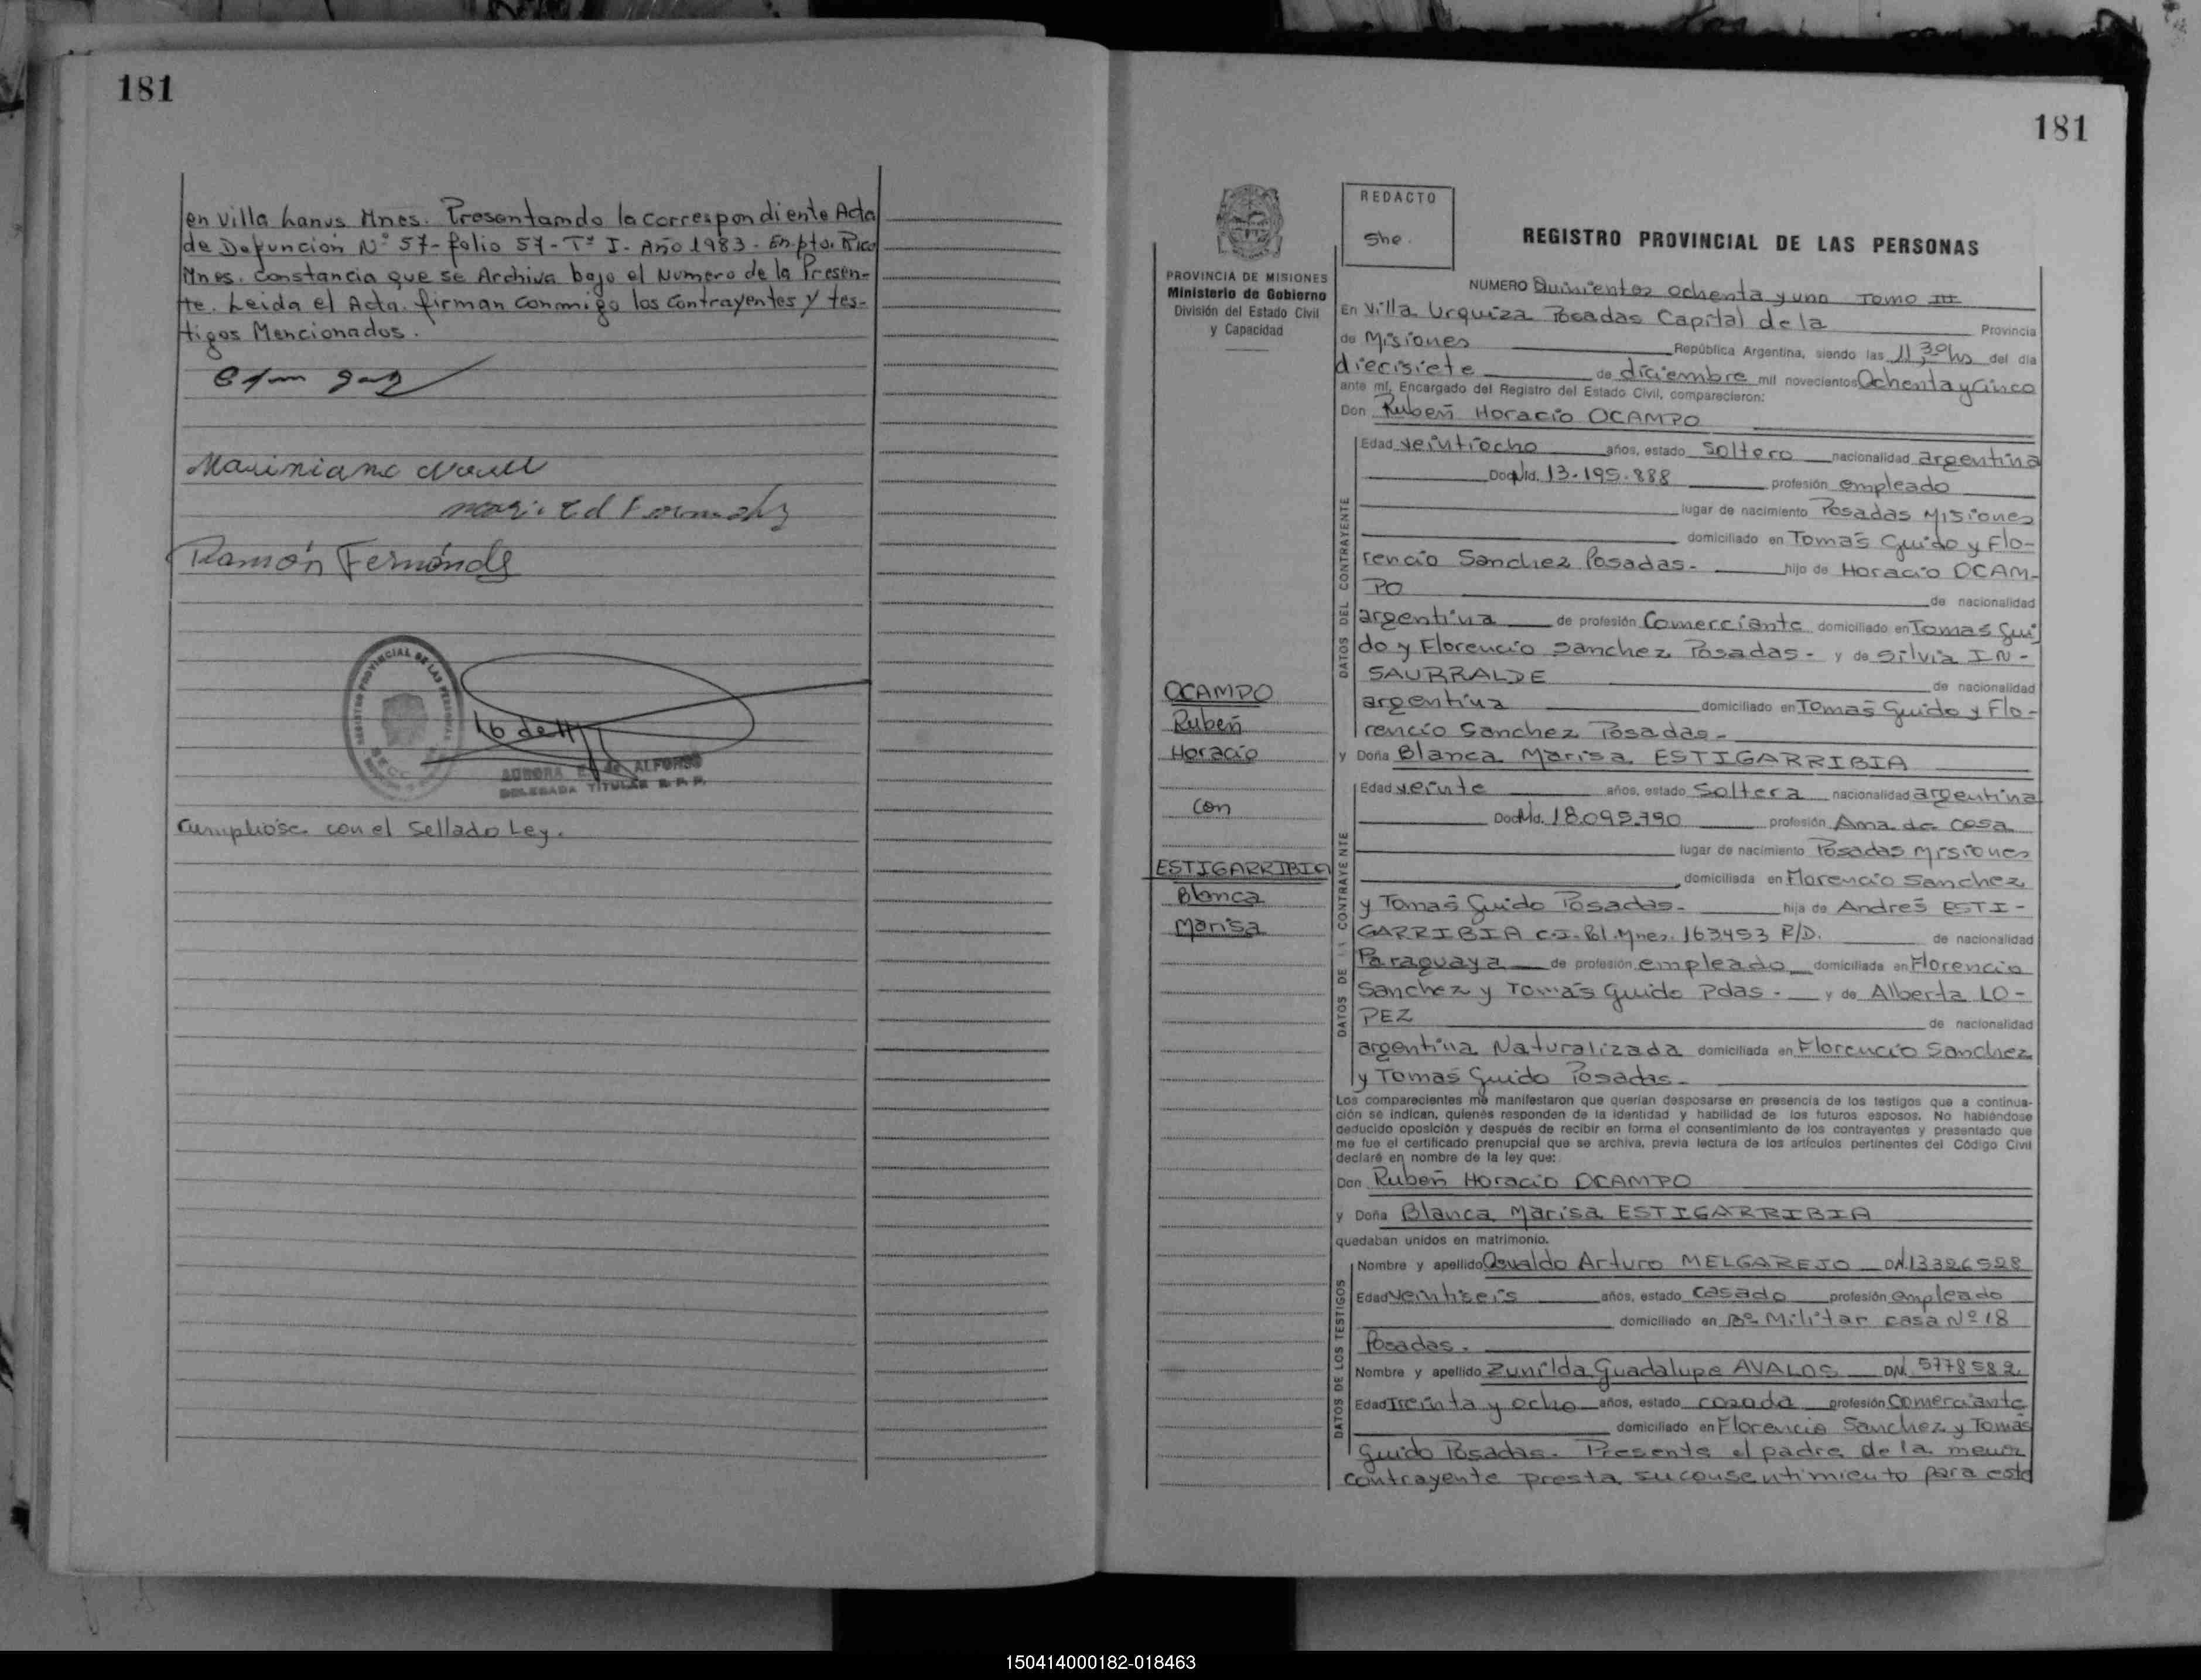 181
en Villa Lanus Mnes. Presentando la correspondiente Acta
de Defunción Nº 57- folio 57- Tº I- Año 1983- En pto. Rico
Mnes. constancia que se Archiva bajo el Numero de la Presen-
te. Leida el Acta. firman conmigo los contrayentes y tes-
tigos Mencionados.
Ramón Fernández
REGISTRO PROVINCIAL DE LAS PERSONAS
AURORA E. de ALFONSO
DELEGADA TITULAR R. P. P.
Cumplióse con el Sellado Ley.
181
REDACTO
She.
PROVINCIA DE MISIONES
Ministerio de Gobierno
División del Estado Civil
y Capacidad
REGISTRO PROVINCIAL DE LAS PERSONAS
NUMERO Quinientos ochenta y uno Tomo III
En Villa Urquiza Posadas Capital de la Provincia
de Misiones República Argentina, siendo las 11,30hs del día
diecisiete de diciembre mil novecientos Ochenta y cinco
ante mí, Encargado del Registro del Estado Civil, comparecieron:
Don Rubén Horacio OCAMPO
Edad veintiocho años, estado Soltero nacionalidad argentina
Doc. Nd. 13.195.888 profesión empleado
lugar de nacimiento Posadas Misiones
domiciliado en Tomás Guido y Flo-
rencio Sanchez Posadas- hijo de Horacio OCAM-
PO de nacionalidad
argentina de profesión Comerciante domiciliado en Tomas Gui
do y Florencio Sanchez Posadas- y de Silvia IN-
SAURRALDE de nacionalidad
argentina domiciliado en Tomás Guido y Flo-
rencio Sanchez Posadas-
y Doña Blanca Marisa ESTIGARRIBIA
Edad veinte años, estado Soltera nacionalidad argentina
Doc. Nd. 18.095.790 profesión Ama de casa
lugar de nacimiento Posadas Misiones
domiciliada en Florencio Sanchez
y Tomás Guido Posadas- hija de Andrés ESTI-
GARRIBIA C.I. Pol. Mnes. 163453 P/D. de nacionalidad
Paraguaya de profesión empleado domiciliada en Florencio
Sanchez y Tomás Guido Pdas- y de Alberta LO-
PEZ de nacionalidad
argentina Naturalizada domiciliada en Florencio Sanchez
y Tomás Guido Posadas-
DATOS DEL CONTRAYENTE
DATOS DE LA CONTRAYENTE
OCAMPO
Rubén
Horacio
con
ESTIGARRIBIA
Blanca
Marisa
Los comparecientes me manifestaron que querían desposarse en presencia de los testigos que a continua-
ción se indican, quienes responden de la identidad y habilidad de los futuros esposos. No habiéndose
deducido oposición y después de recibir en forma el consentimiento de los contrayentes y presentado que
me fue el certificado prenupcial que se archiva, previa lectura de los artículos pertinentes del Código Civil
declaré en nombre de la ley que:
Don Rubén Horacio OCAMPO
y Doña Blanca Marisa ESTIGARRIBIA
quedaban unidos en matrimonio.
DATOS DE LOS TESTIGOS
Nombre y apellido Osvaldo Arturo MELGAREJO DN. 13326528
Edad veintiseis años, estado casado profesión empleado
domiciliado en Bº Militar casa Nº 18
Posadas.
Nombre y apellido Zunilda Guadalupe AVALOS DN. 5778582
Edad Treinta y ocho años, estado casada profesión Comerciante
domiciliado en Florencio Sanchez y Tomás
Guido Posadas- Presente el padre de la menor
contrayente presta su consentimiento para este
150414000182-018463